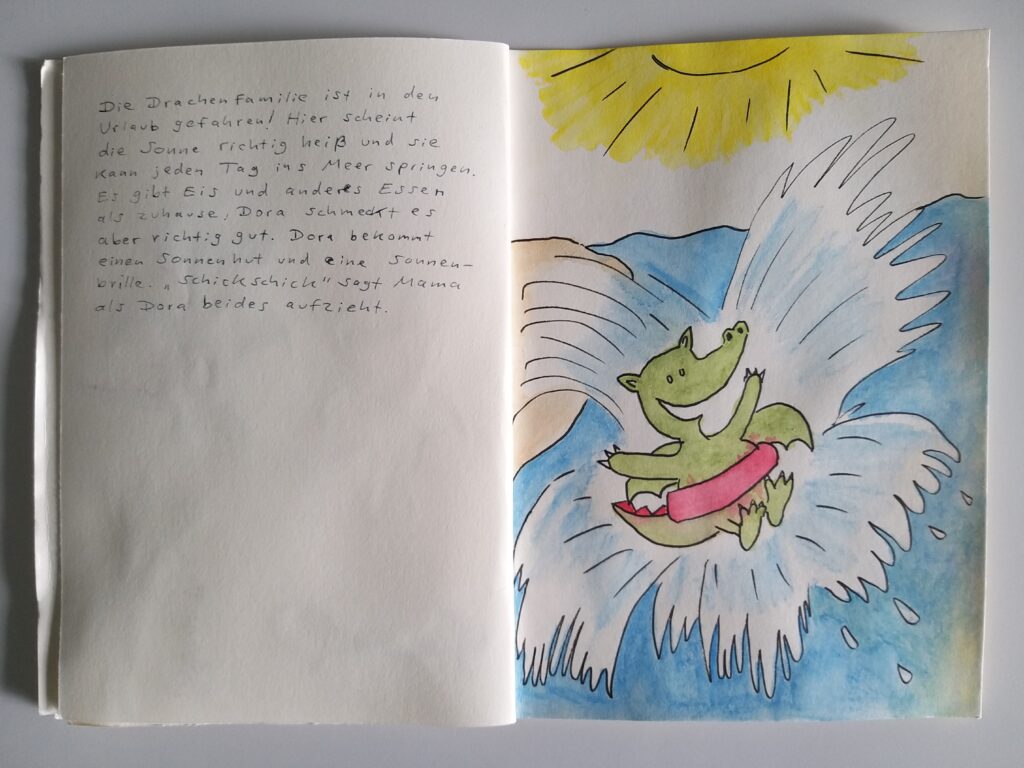 Die Drachenfamilie ist in den
Urlaub gefahren! Hier scheint
die Sonne richtig heiß und sie
kann jeden Tag ins Meer springen.
Es gibt Eis und anderes Essen
als zuhause, Dora schmeckt es
aber richtig gut. Dora bekommt
einen Sonnenhut und eine Sonnen-
brille. „Schickschick" sagt Mama
als Dora beides aufzieht.